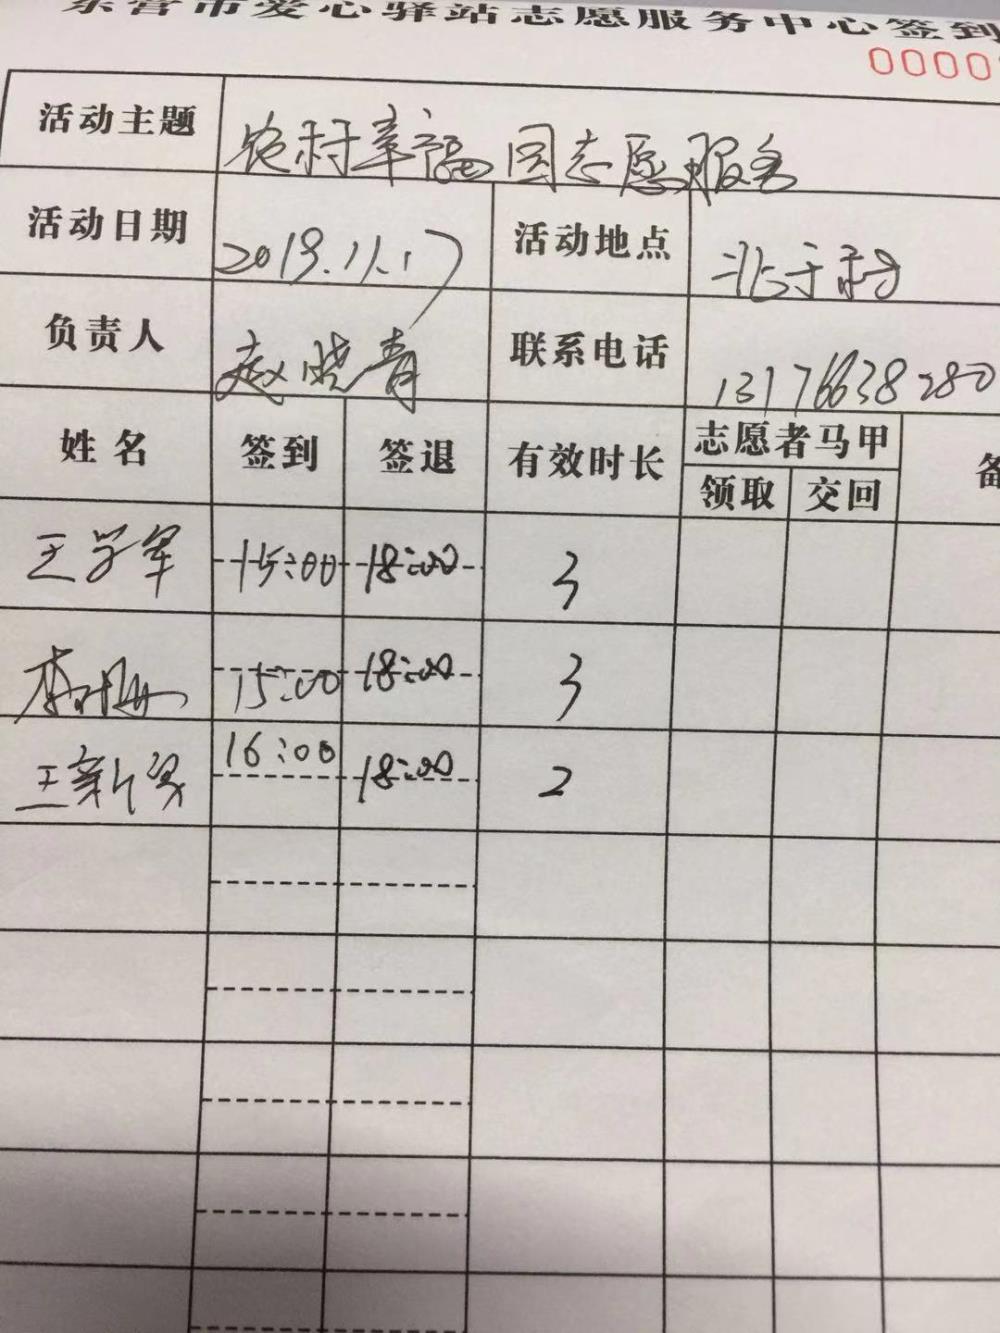 东营市爱心驿站志愿服务中心签到
0000
活动主题 农村幸福园志愿服务
活动日期 2019.11.17 活动地点 北于村
负责人 赵晓青 联系电话 13176638280
姓名 签到 签退 有效时长 志愿者马甲 备
领取 交回
王学军 15:00 18:00 3
15:00 18:00 3
16:00 18:00 2